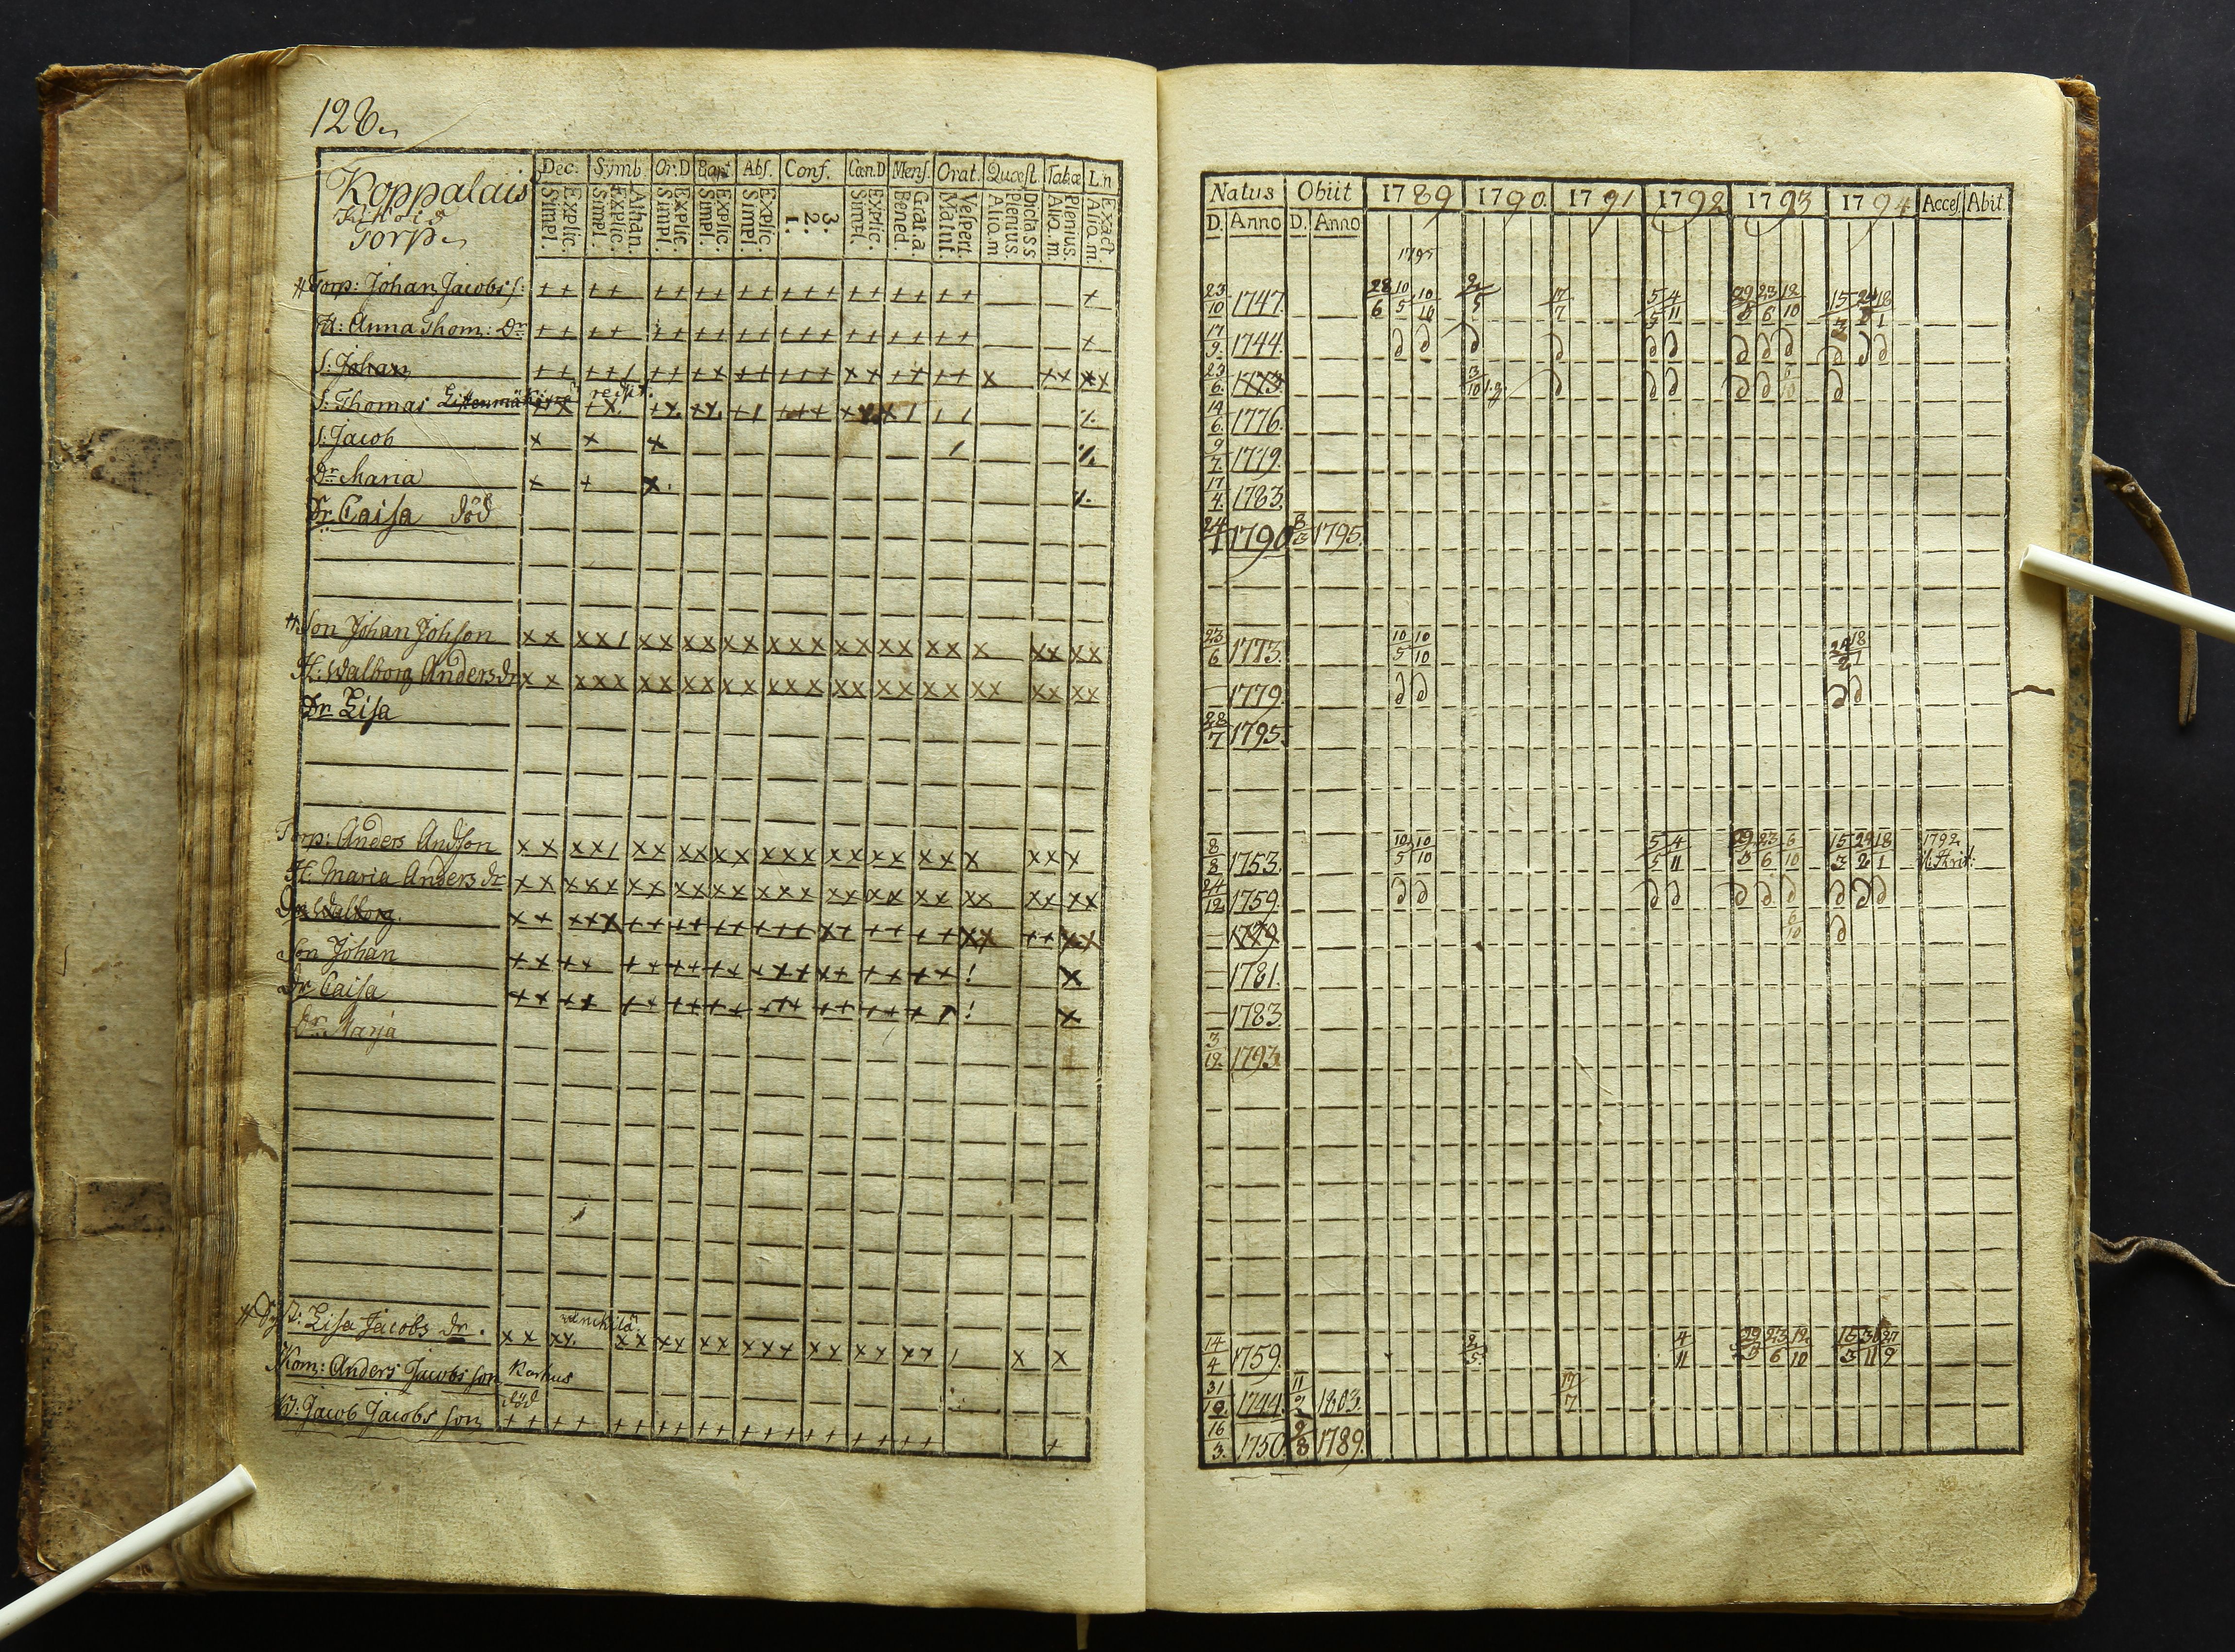 128.
Koppalais
Torp.
Dec. Symb. Or.D Bapt Abs. Conf. Cœn.D Mens. Orat. Quæst. Tabæ L.n
Simpl. Explic. Simpl. Explic. Athan. Simpl. Explic. Simpl. Explic. Simpl. Explic. 1. 2. 3. Simpl. Explic. Bened. Grat.a. Matut. Vespert. Alio.m Plenius. Dictis ss Alio.m. Plenius. Alio.m. Exact.
Torp: Johan Jacobs s:
H: Anna Thom: Dr
S: Johan
S: Thomas
S: Jacob
Dr Maria
Dr Caisa död
Son Johan Johson
H: Walborg Anders dr
Dr Lisa
Torp: Anders Andson
H: Maria Anders dr
Dr Walborg
Son Johan
Dr Caisa
Dr Marja
Lisa Jacobs dr.
Anders Jacobs son
död
Jacob Jacobs son
Natus Obiit 1789 1790. 1791 1792 1793 1794 Acces. Abit.
D. Anno D. Anno
1795
23/10 1747. 28/6 10/5 10/10 2/5 17/7 5/5 4/11 29/3 23/6 18/10 15/3 24/2 18/1
17/9. 1744.
23/6. 1773.
14/6. 1776.
9/7. 1779.
17/4. 1783.
24/1 1790 1795.
23/6 1773. 10/5 10/10 24/2 18/1
1779.
28/7 1795.
8/8 1753. 10/5 10/10 5/5 4/11 29/3 23/6 6/10 15/3 24/2 18/1 1792
24/12 1759.
1779 6/10
1781.
1783.
3/12. 1793.
14/4 1759. 2/5. 4/11 29/3 23/6 12/10 15/3 30/11 27/9
31/12. 1744. 11/2 1803. 17/7
16/3. 1750. 2/3 1789.